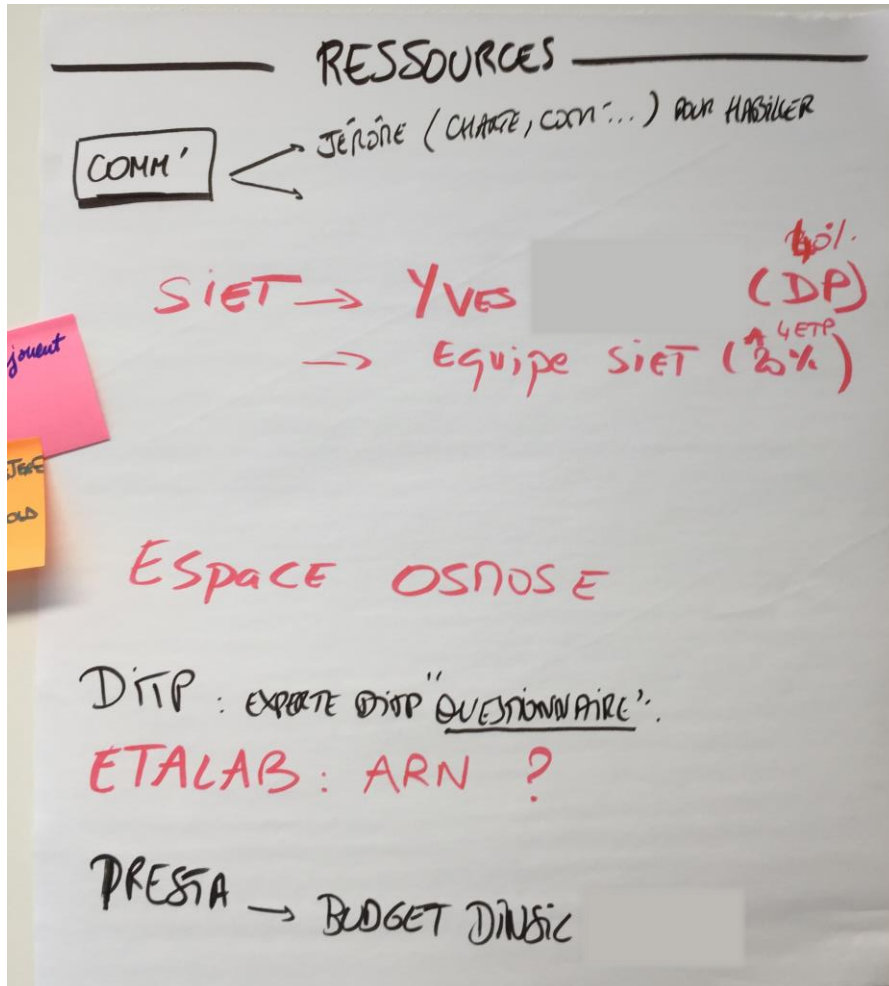 RESSOURCES
COMM' JÉRÔME (CHARTE, COM'...) POUR HABILLER
40%.
SIET → YVES (DP)
4 ETP
→ EQUIPE SIET (20%)
jouent
OLD
ESPACE OSMOSE
DITP : EXPERTE DITP "QUESTIONNAIRE".
ETALAB : ARN ?
PRESTA → BUDGET DINSIC